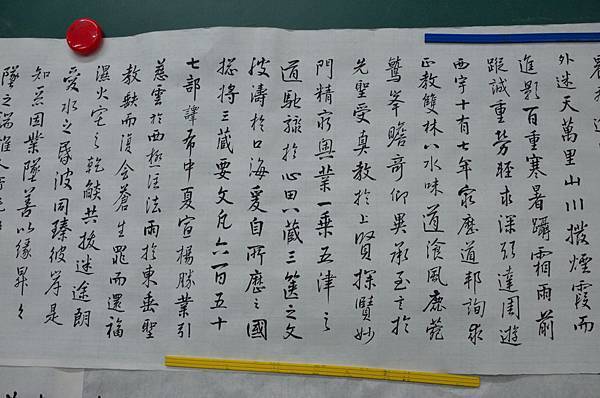 外迷天萬里山川撥煙霞而
進影百重寒暑躡霜雨前
蹤誠重勞輕求深願達周遊
西宇十有七年窮歷道邦詢求
正教雙林八水味道飡風鹿菀
鷲峯瞻奇仰異承至言於
先聖受真教於上賢探賾妙
門精窮奧業一乘五律之
道馳驟於心田八藏三篋之文
波濤於口海爰自所歷之國
總將三藏要文凡六百五十
七部譯布中夏宣揚勝業引
慈雲於西極注法雨於東垂聖
教缺而復全蒼生罪而還福
濕火宅之乾焰共拔迷途朗
愛水之昏波同臻彼岸是
知惡因業墜善以緣昇々
墜之端惟人